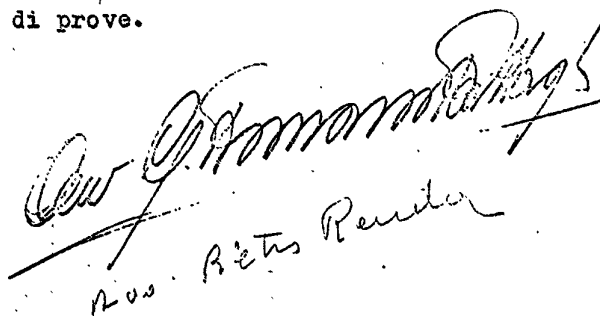 di prove.
Avv. G.
Avv. Pietro Renda